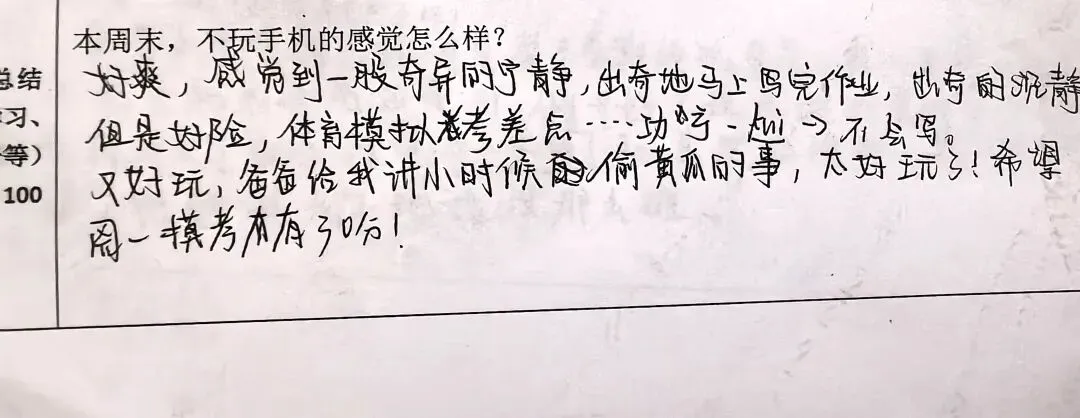 本周末，不玩手机的感觉怎么样？
总结 好爽，感觉到一股奇异的宁静，出奇地马上写完作业，出奇的 静
习、 但是好险，体育模拟考差点……功亏一kui→不会写。
等） 又好玩，爸爸给我讲小时候偷黄瓜的事，太好玩了！希望
100 周一模考有30分！